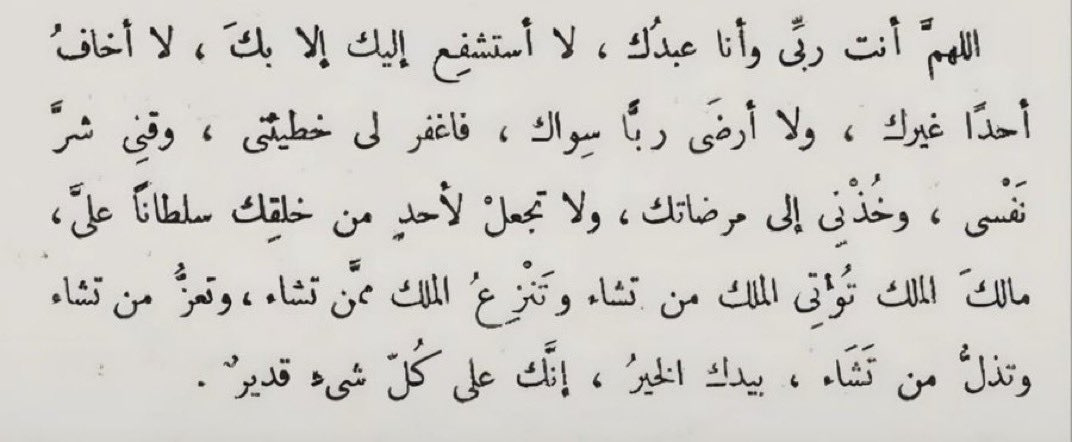 اللهمَّ أنت ربِّى وأنا عبدُك ، لا أستشفِع إليك إلا بكَ ، لا أخافُ
أحدًا غيرك ، ولا أرضَى ربًّا سِواك ، فاغفر لى خطيئتى ، وقنِى شرَّ
نَفْسى ، وخُذْنِى إلى مرضاتك ، ولا تجعلْ لأحدٍ من خلقِك سلطانًا علىَّ ،
مالكَ الملك تُؤتِى الملك من تشاء وتَنْزِعُ الملك ممَّن تشاء ، وتعزُّ من تشاء
وتذلُّ من تَشَاء ، بيدك الخيرُ ، إنَّك على كُلّ شىء قديرٌ .